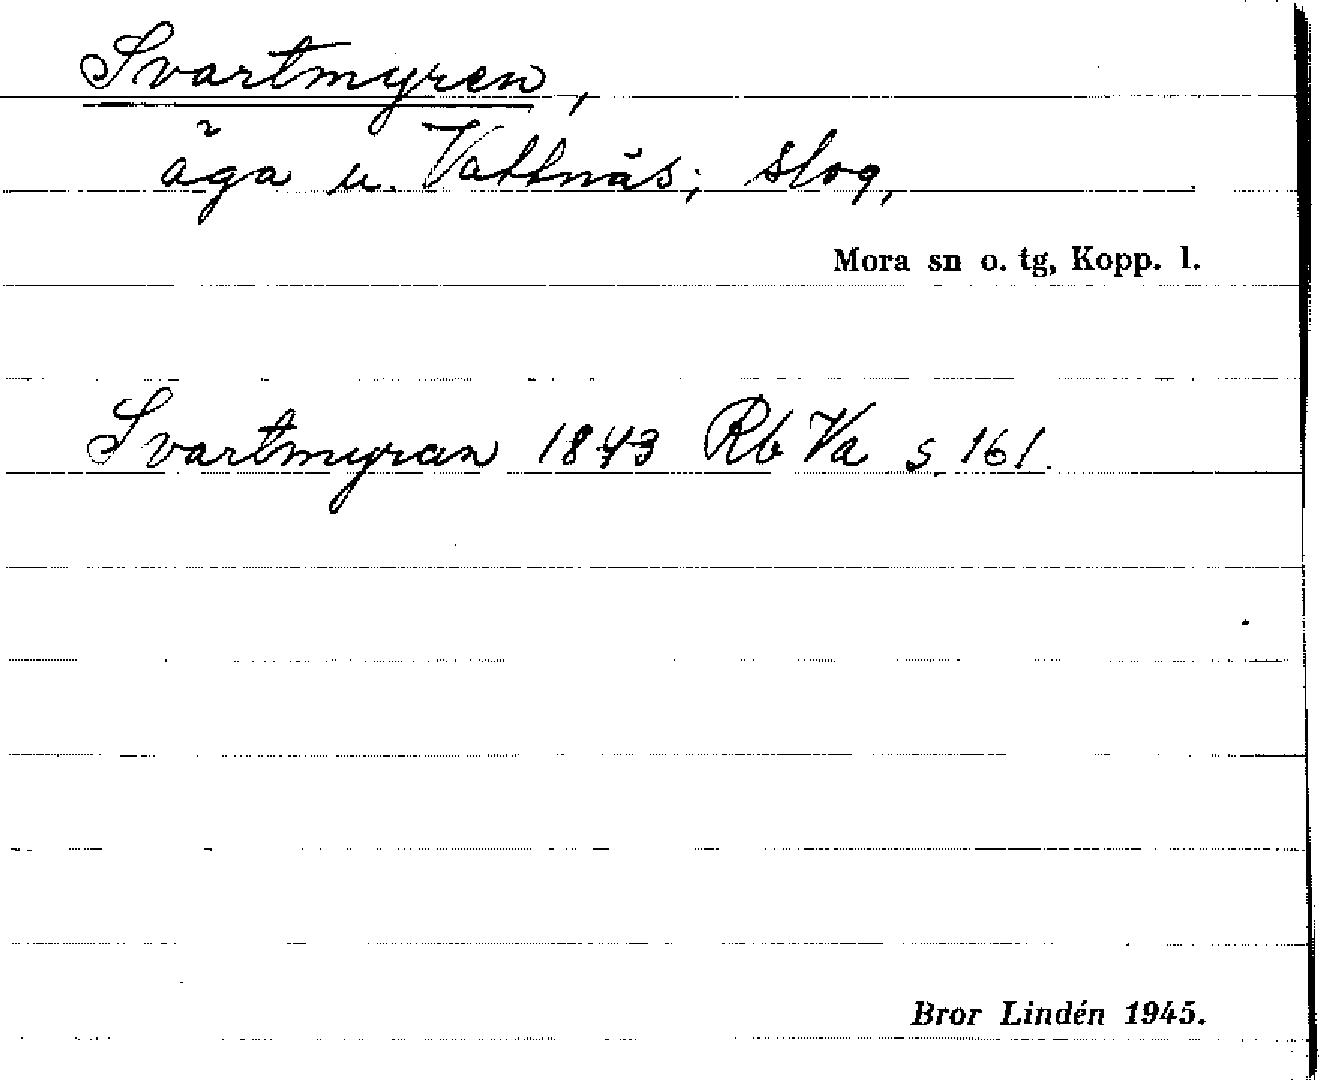 Svartmyren,
äga u. Vattnäs; slog,
Mora sn o. tg, Kopp. l.
Svartmyran 1843 Rb Va s. 161.
Bror Lindén 1945.